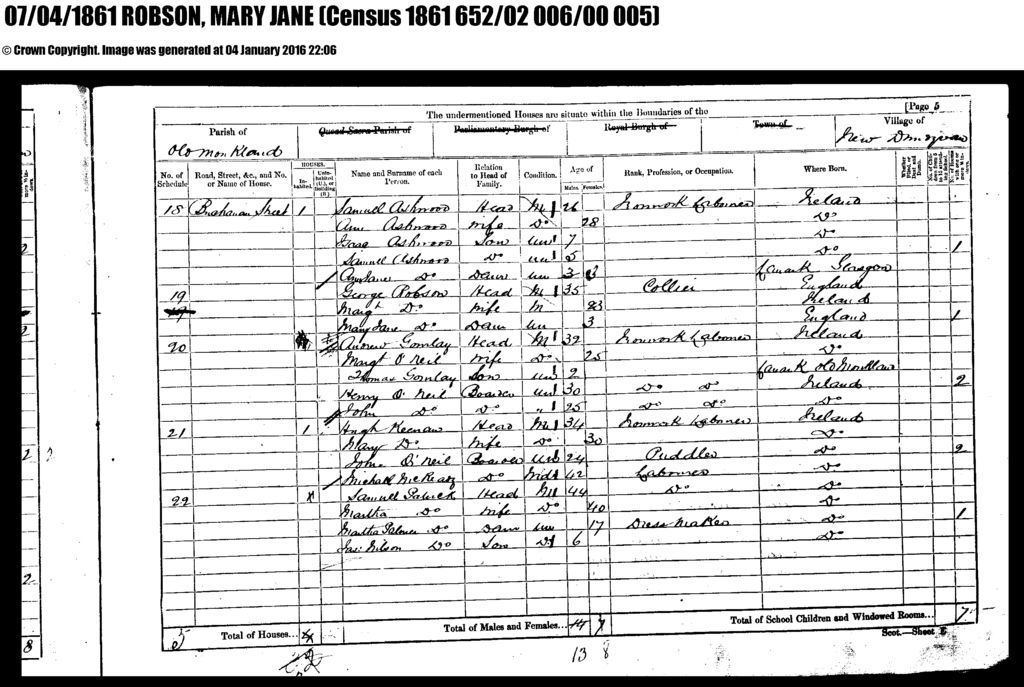 07/04/1861 ROBSON, MARY JANE (Census 1861 652/02 006/00 005)
© Crown Copyright. Image was generated at 04 January 2016 22:06
[Page 5
The undermentioned Houses are situate within the Boundaries of the
Parish of Quoad Sacra Parish of Parliamentary Burgh of Royal Burgh of Town of Village of
Old Monkland New
No. of Schedule Road, Street, &c., and No. or Name of House. HOUSES. Inhabited. Uninhabited (U.), or Building (B.) Name and Surname of each Person. Relation to Head of Family. Condition. Age of Males. Females. Rank, Profession, or Occupation. Where Born.
18 Buchanan Street 1 Samuel Ashwood Head M 26 Ironwork Labourer Ireland
Ann Ashwood Wife Do 28 Do
Ashwood Son un 7 Do
Samuel Ashwood Do un 5 Do 1
Ann Jane Do Daur un 3 Lanark Glasgow
19 George Robson Head M 35 Collier England
Margt Do Wife M 23 Ireland
Mary Jane Do Daur un 3 England 1
20 Andrew Gomlay Head M 32 Ironwork Labourer Ireland
Margt O'Neil Wife Do 25 Do
Thomas Gomlay Son un 2 Lanark Old Monkland
Henry O'Neil Boarder un 30 Do Do Ireland 2
John Do Do " 25 Do Do Do
21 1 Hugh Keenan Head M 34 Ironwork Labourer Ireland
Mary Do Wife Do 30 Do
John O'Neil Boarder un 24 Puddler Do 2
Michael Do Widr 42 Labourer Do
22 Samuel Patrick Head M 44 Do Do
Martha Do Wife Do 40 Do
Martha Palmer Do Daur un 17 Dress Maker Do 1
Jas. Wilson Do Son Do 6 Do
5 Total of Houses... Total of Males and Females... 14 7 Total of School Children and Windowed Rooms... 7
Scot.—Sheet E
2 13 8